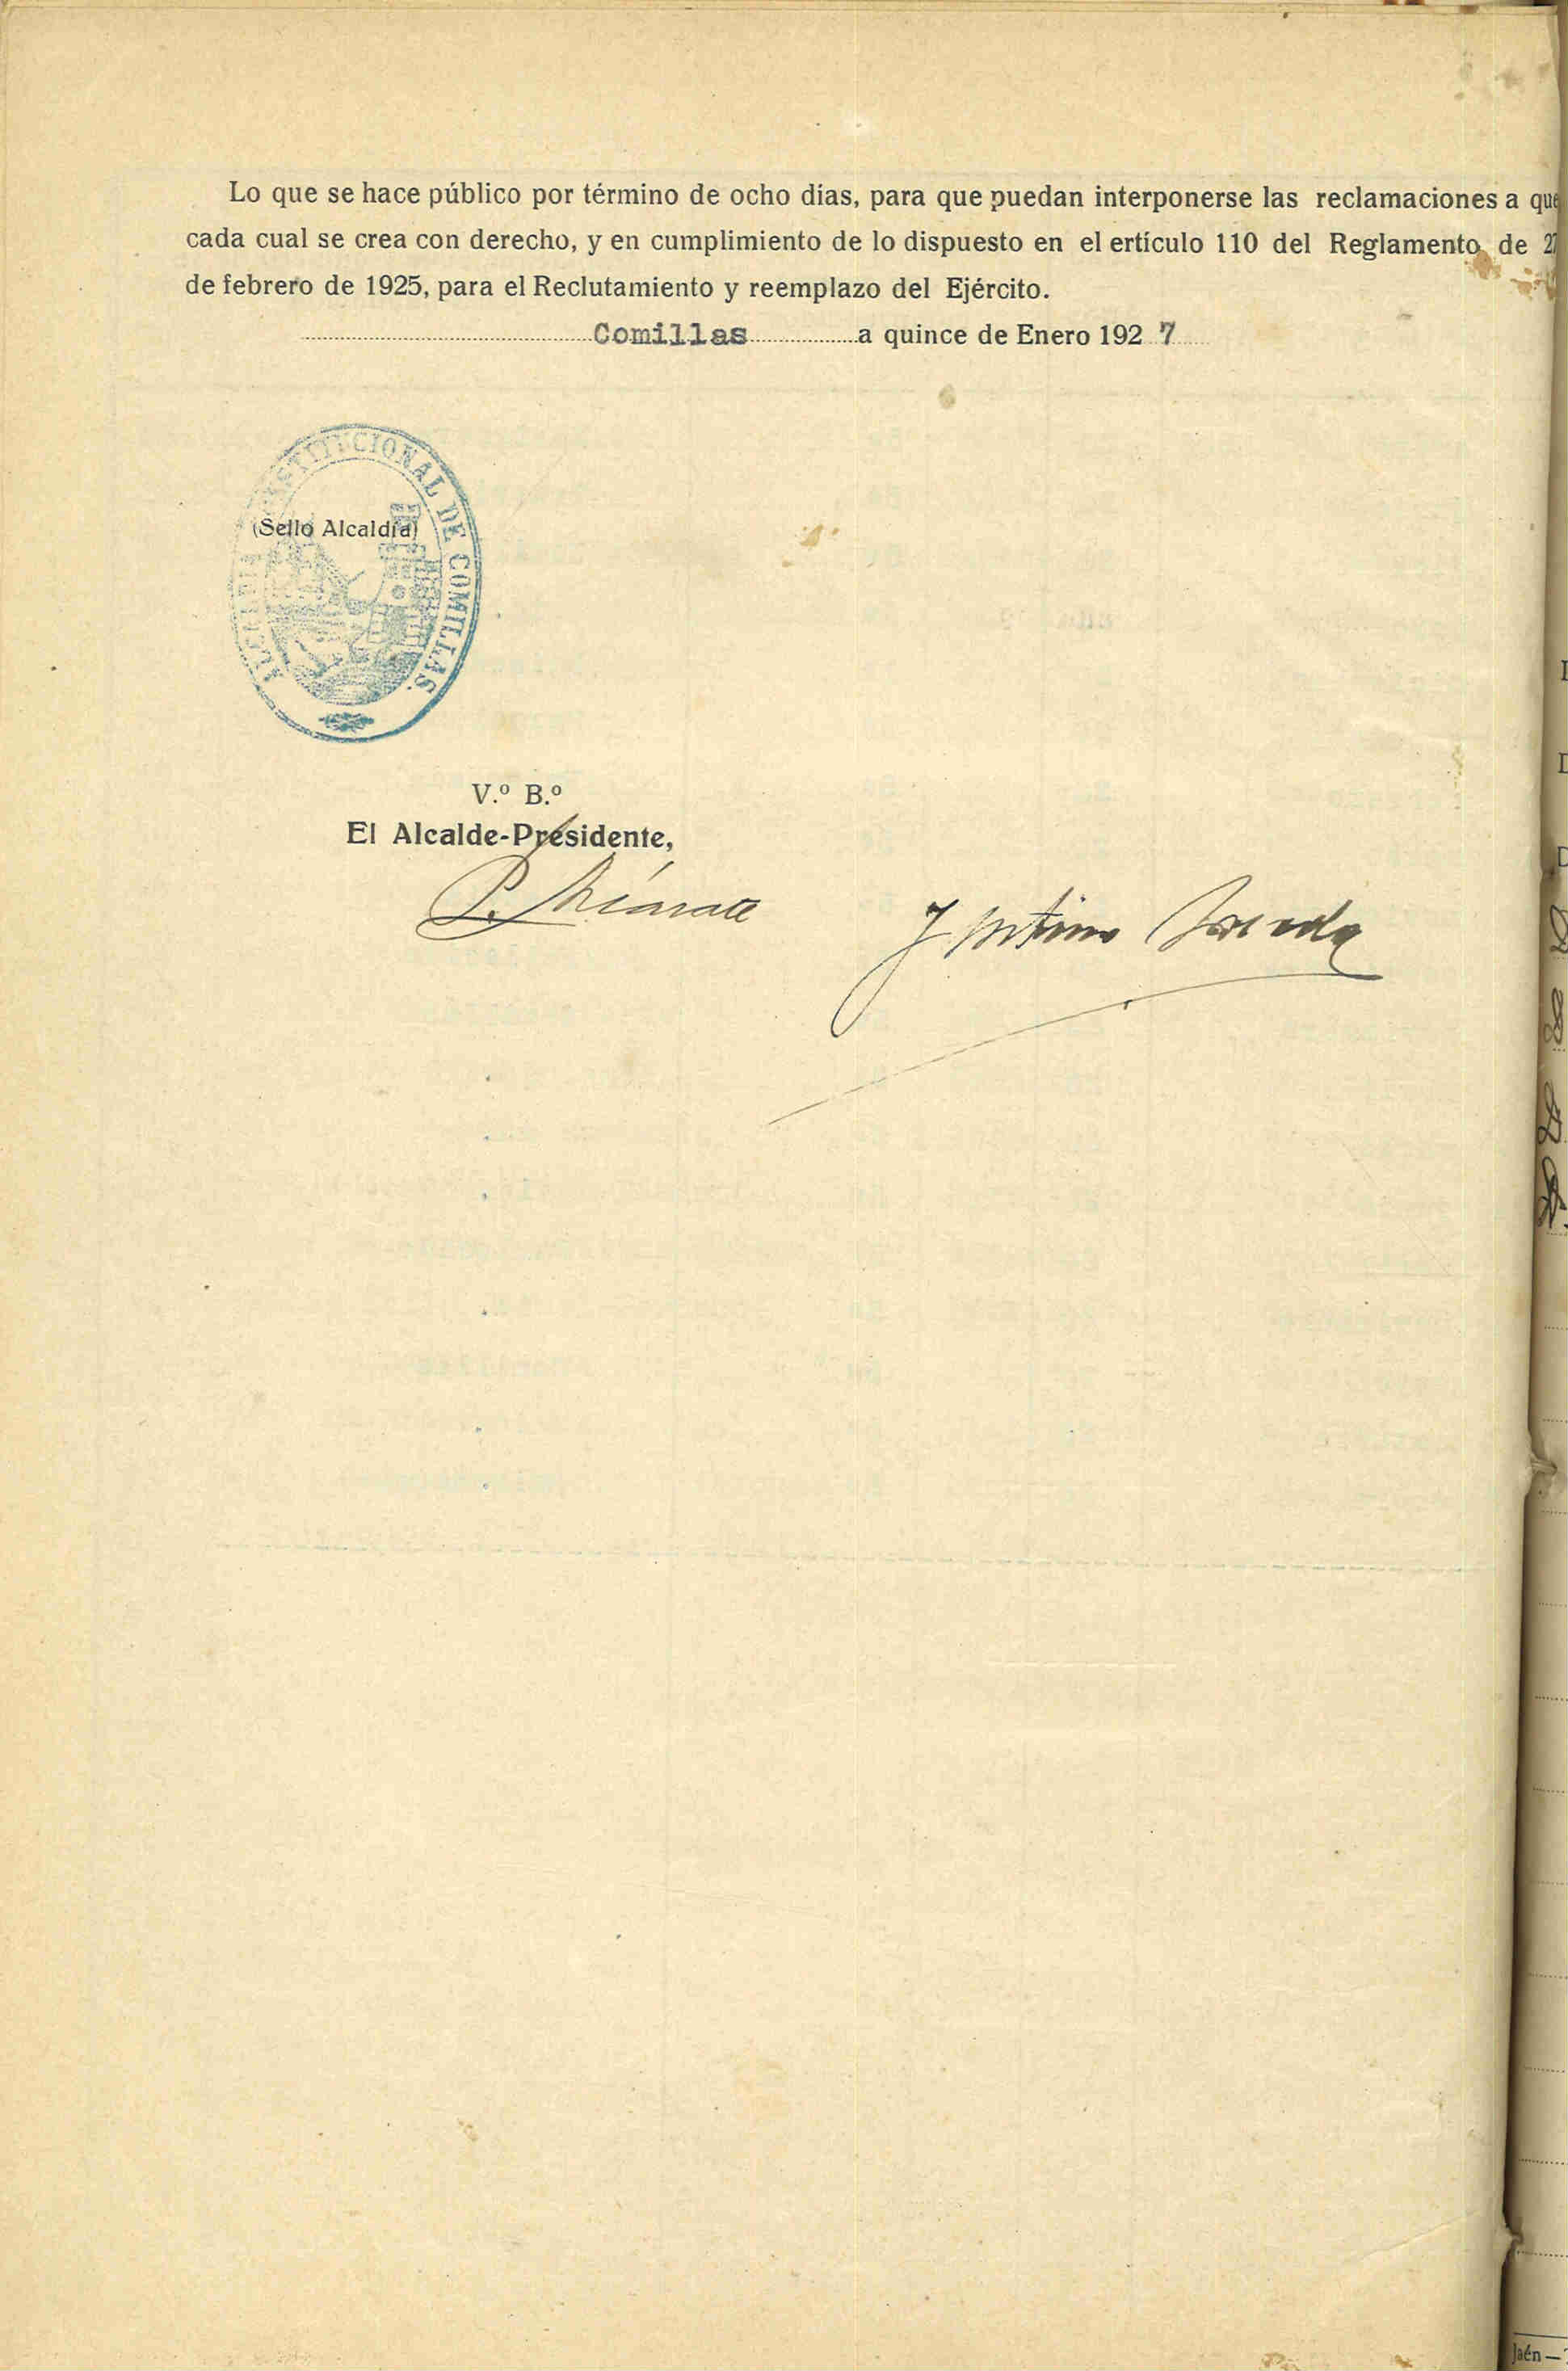 Lo que se hace público por término de ocho días, para que puedan interponerse las reclamaciones a que
cada cual se crea con derecho, y en cumplimiento de lo dispuesto en el ertículo 110 del Reglamento de 27
de febrero de 1925, para el Reclutamiento y reemplazo del Ejército.
Comillas a quince de Enero 1927
DE COMILLAS.
(Sello Alcaldía)
V.º B.º
El Alcalde-Presidente,
P.
Jaén —